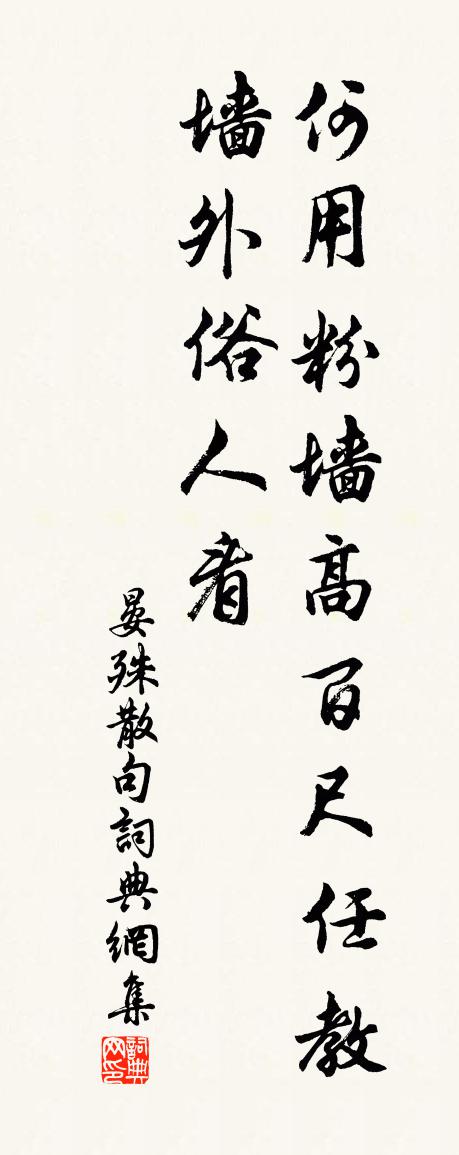 何用粉墙高百尺任教
墙外俗人看
晏殊散句詞典網集
詞典网印